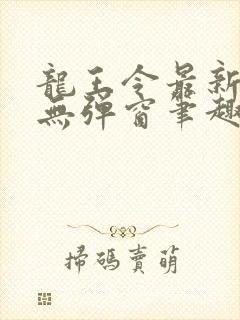 龍王令最新
無彈窗筆趣
掃碼賣萌